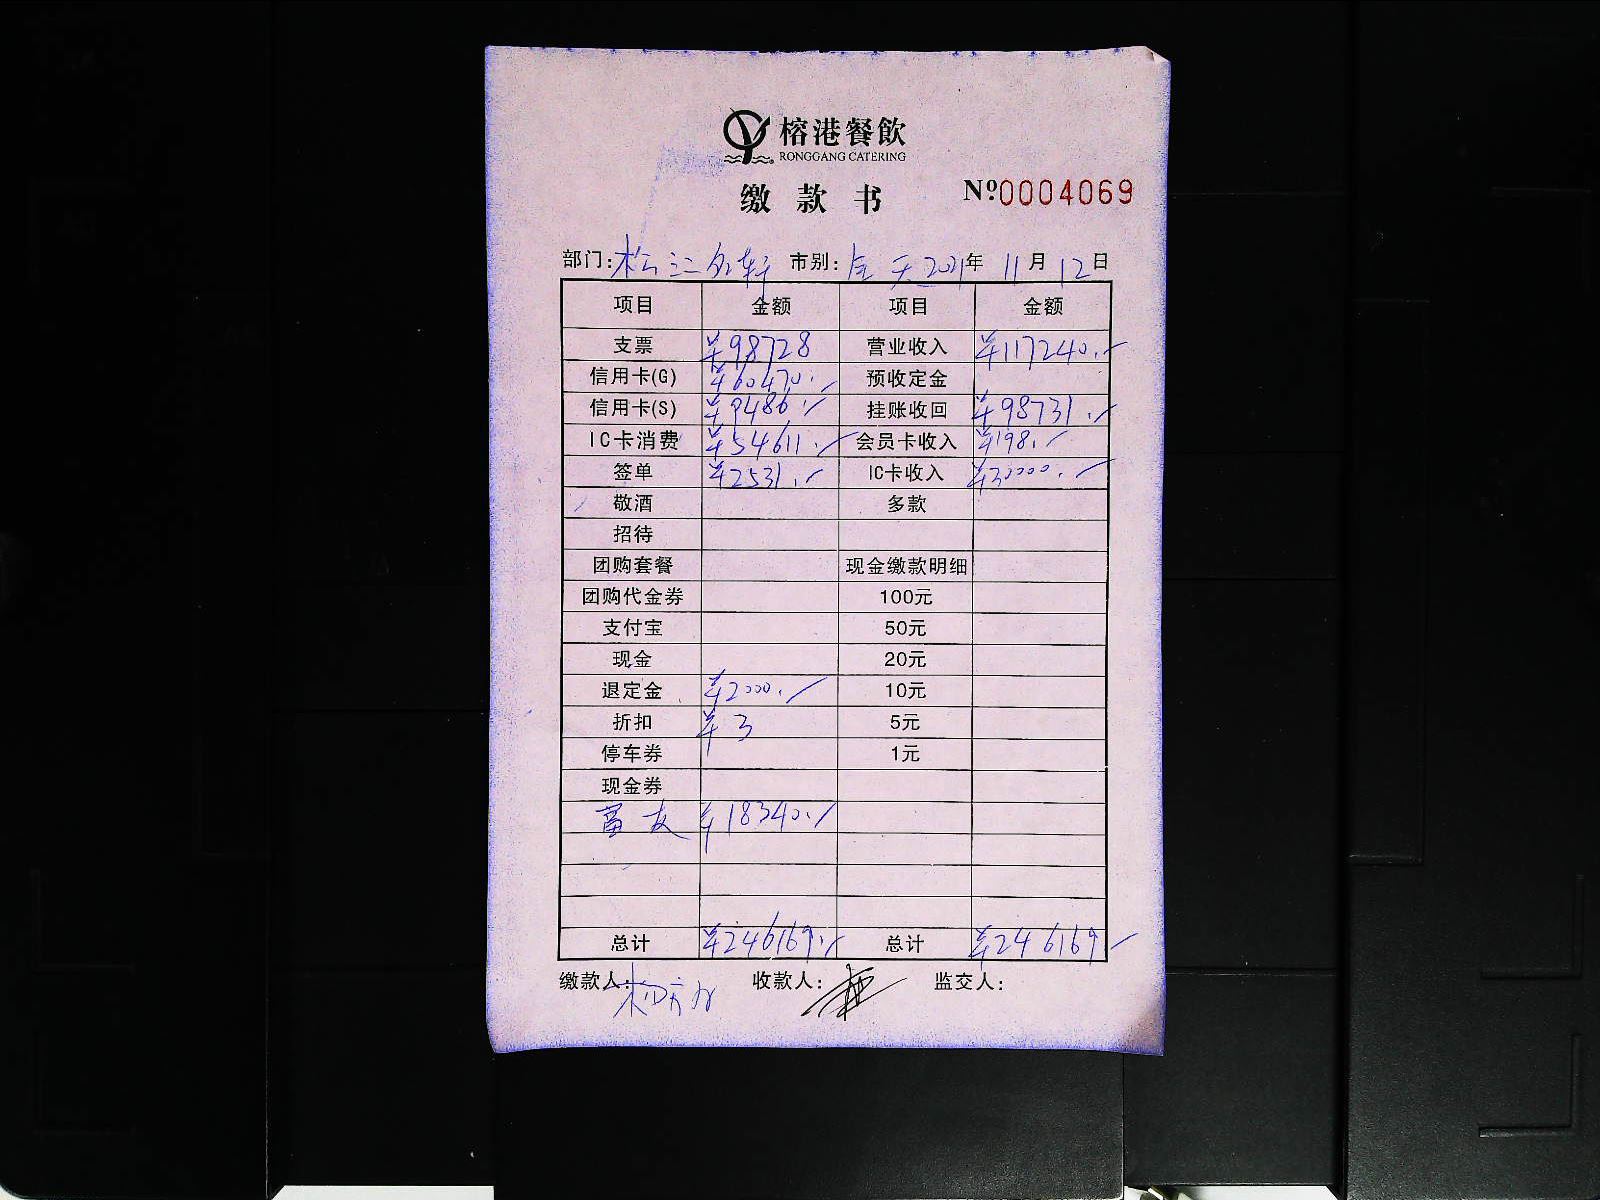 榕港餐飲
RONGGANG CATERING
缴款书 Nº0004069
部门: 松江名轩 市别: 全天 2021年 11月 12日
项目 金额 项目 金额
支票 ¥98728 营业收入 ¥117240.-
信用卡(G) ¥60470.- 预收定金
信用卡(S) ¥9486.- 挂账收回 ¥98731.-
IC卡消费 ¥54611.- 会员卡收入 ¥198.-
签单 ¥2531.- IC卡收入 ¥30000.-
敬酒 多款
招待
团购套餐 现金缴款明细
团购代金券 100元
支付宝 50元
现金 20元
退定金 ¥2000.- 10元
折扣 ¥3 5元
停车券 1元
现金券
富友 ¥18340.-
总计 ¥246169.- 总计 ¥246169-
缴款人: 收款人: 监交人: